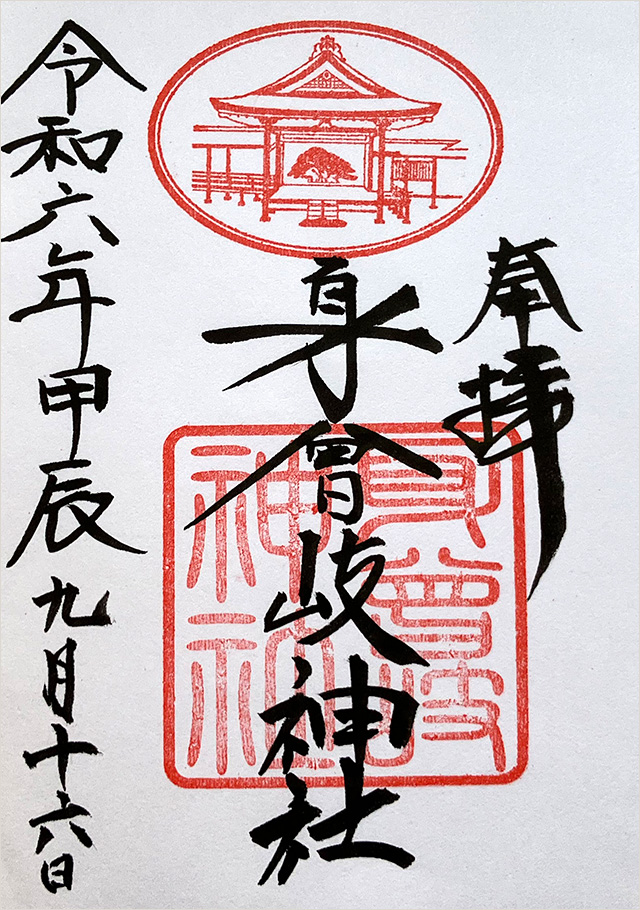 奉拝
身會岐神社
身曾岐神社
令和六年甲辰九月十六日